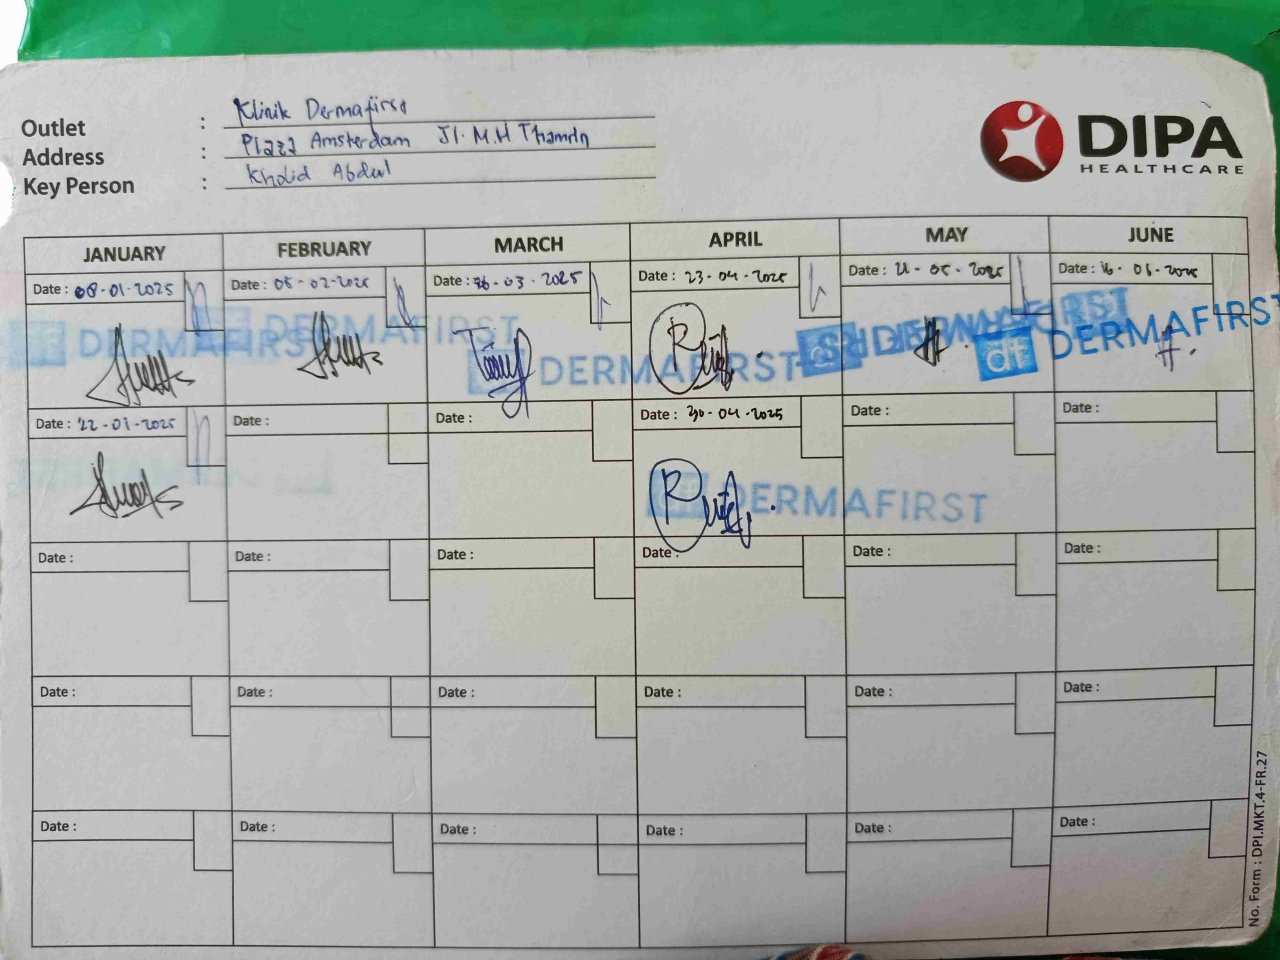 Outlet : Klinik Dermafirst
Address : Plaza Amsterdam Jl. M.H Thamrin
Key Person : Kholid Abdul
DIPA
HEALTHCARE
JANUARY FEBRUARY MARCH APRIL MAY JUNE
Date : 08-01-2025 Date : 05-02-2025 Date : 26-03-2025 Date : 23-04-2025 Date : 21-05-2025 Date : 16-06-2025
DERMAFIRST DERMAFIRST DERMAFIRST DERMAFIRST df DERMAFIRST
Date : 22-01-2025 Date : Date : Date : 30-04-2025 Date : Date :
df DERMAFIRST
Date : Date : Date : Date : Date : Date :
Date : Date : Date : Date : Date : Date :
Date : Date : Date : Date : Date : Date :
No. Form : DPI.MKT.4-FR.27